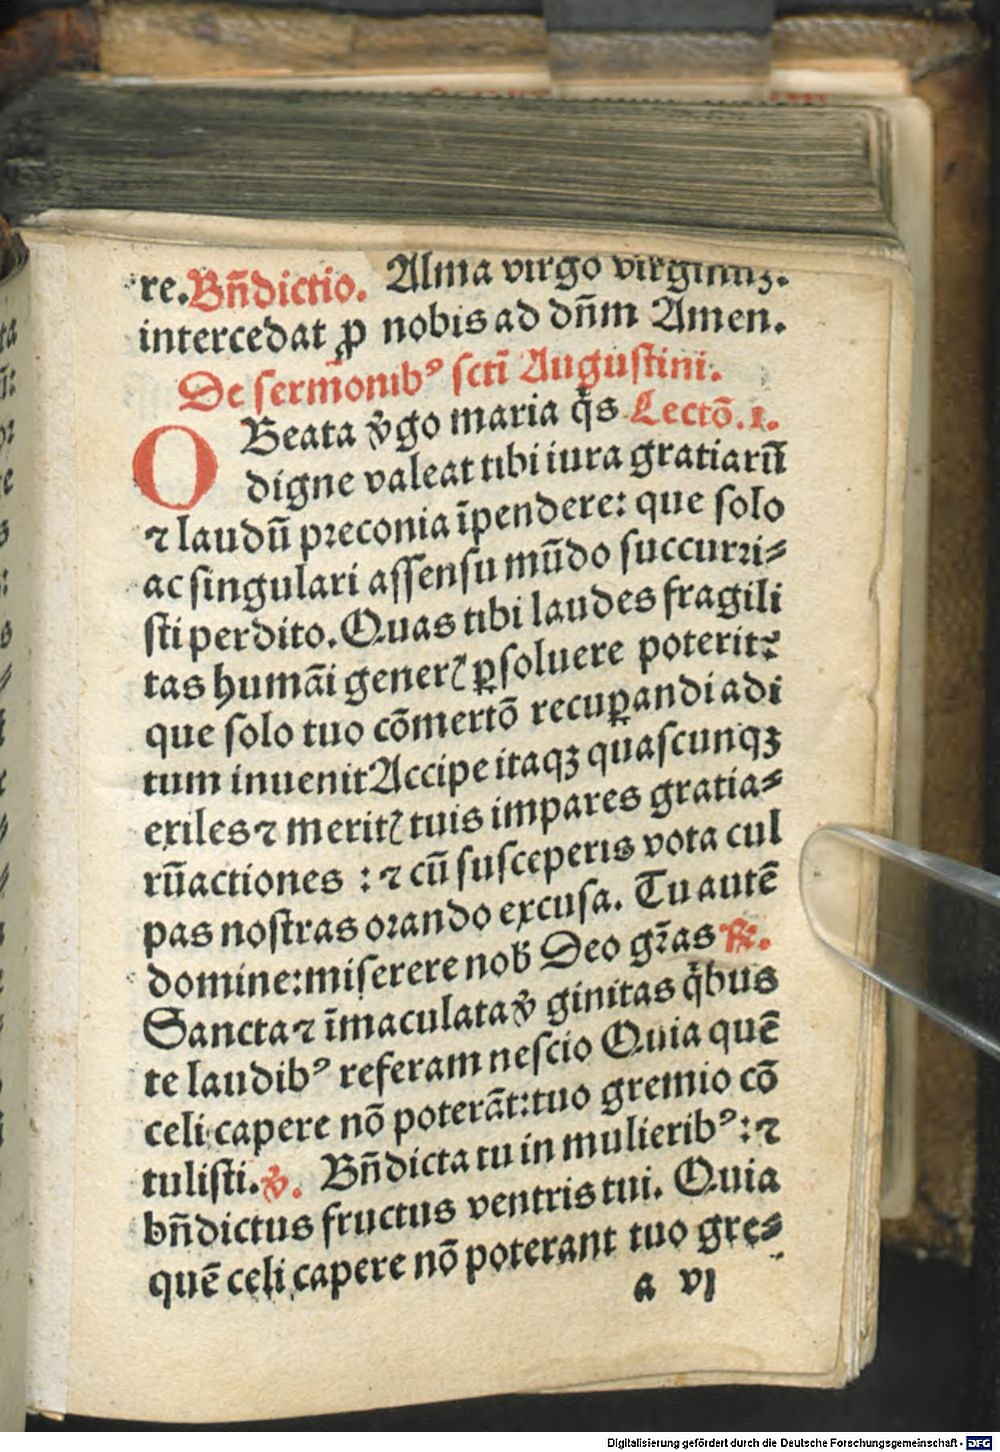 re. Bñdictio. Alma virgo virginuꝫ.
intercedat ꝓ nobis ad dñm Amen.
De sermonibꝰ scti Augustini.
O Beata v̾go maria q̇s Lectō. 1.
digne valeat tibi iura gratiarū
⁊ laudū preconia īpendere: que solo
ac singulari assensu mūdo succurri⸗
sti perdito. Quas tibi laudes fragili
tas humāi generꝭ ꝑsoluere poterit?
que solo tuo cōmertō recuꝑandi adi
tum inuenit Accipe itaqꝫ quascunqꝫ
exiles ⁊ meritꝭ tuis impares gratia⸗
rū actiones : ⁊ cū susceperis vota cul
pas nostras orando excusa. Tu autē
domine: miserere nob̾ Deo gr̄as ℟.
Sancta ⁊ īmaculata v̾ ginitas q̇bus
te laudibꝰ referam nescio Quia quē
celi capere nō poterāt: tuo gremio cō
tulisti. ℣. Bñdicta tu in mulieribꝰ: ⁊
bñdictus fructus ventris tui. Quia
quē celi capere nō poterant tuo gre⸗
a vj
Digitalisierung gefördert durch die Deutsche Forschungsgemeinschaft - DFG